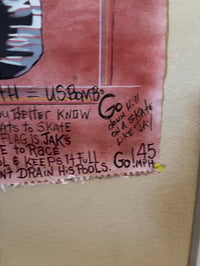 TH = U.S. BOMBS
OU BETTER KNOW
HTS TO SKATE
FLAG IS JAK'S
E TO RACE
OL & KEEPS IT FULL
N'T DRAIN HIS POOLS.
GO
DOWN HILL
ON A SKATE
LIKE JAY
GO! 45
MPH